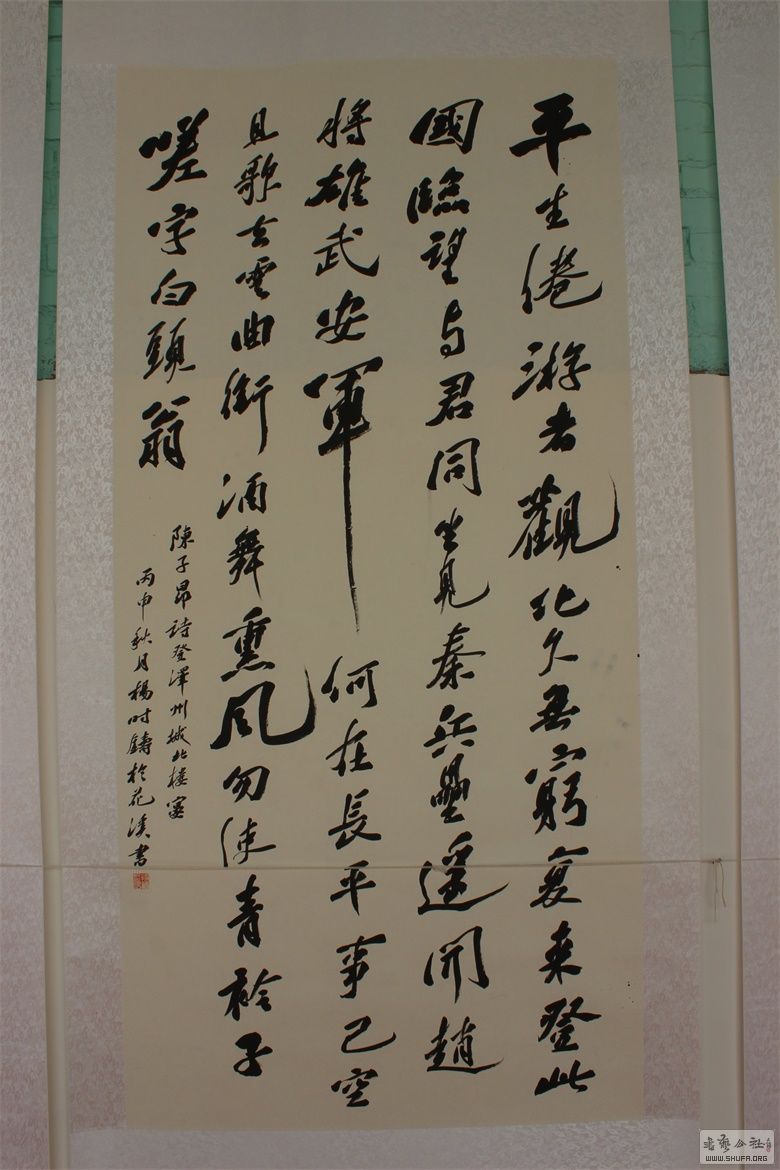 平生倦游者觀化久無窮复来登此
國臨望与君同坐見秦兵壘遥聞趙
將雄武安軍何在長平事已空
且歌玄雲曲銜酒舞熏風勿使青衿子
嗟尔白頭翁
陳子昂詩登澤州城北楼宴
丙申秋月楊时鑄於花溪書
書藝公社
WWW.SHUFA.ORG